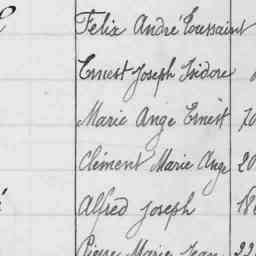 Felix André Toussaint
Ernest Joseph Isidore
Marie Ange Ernest
Clément Marie Ange 20
Alfred Joseph 18
Pierre Marie Jean 22